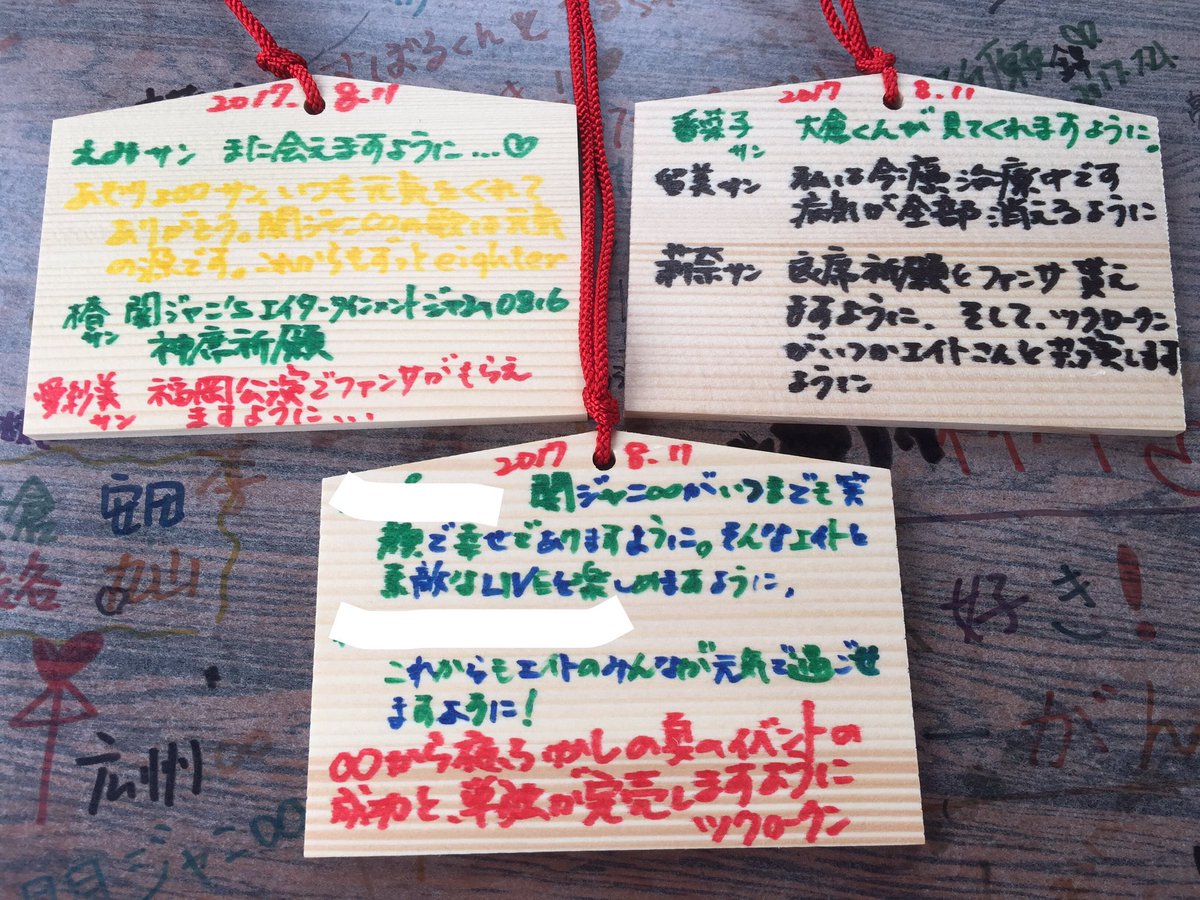 2017. 8.11
えみサン まに会えますように…♡
サン、いつも元気をくれて
ありがとう。関ジャニ∞の歌は元気
の源です。これからもずっとeighter
橙サン 関ジャニ'sエイターテインメントジャム0816
神席祈願
愛紗美サン 福岡公演でファンサがもらえ
ますように...
2017 8.11
香菜子サン 大倉くんが見てくれますように。
留美サン 私は今癌治療中です
病気が全部消えるように
莉奈サン 良席祈願とファンサ貰え
ますように、そして、ツクロークン
がいつかエイトさんと共演します
ように
2017 8.11
関ジャニ∞がいつまでも笑
顔で幸せでありますように。そんなエイトと
素敵なLIVEを楽しめますように。
これからもエイトのみんなが元気で過ごせ
ますように!
∞から癒 の夏のイベントの
成功と、単独が完売しますように
ツクロークン
安田
丸山
広州
関ジャニ∞
好き!
がん